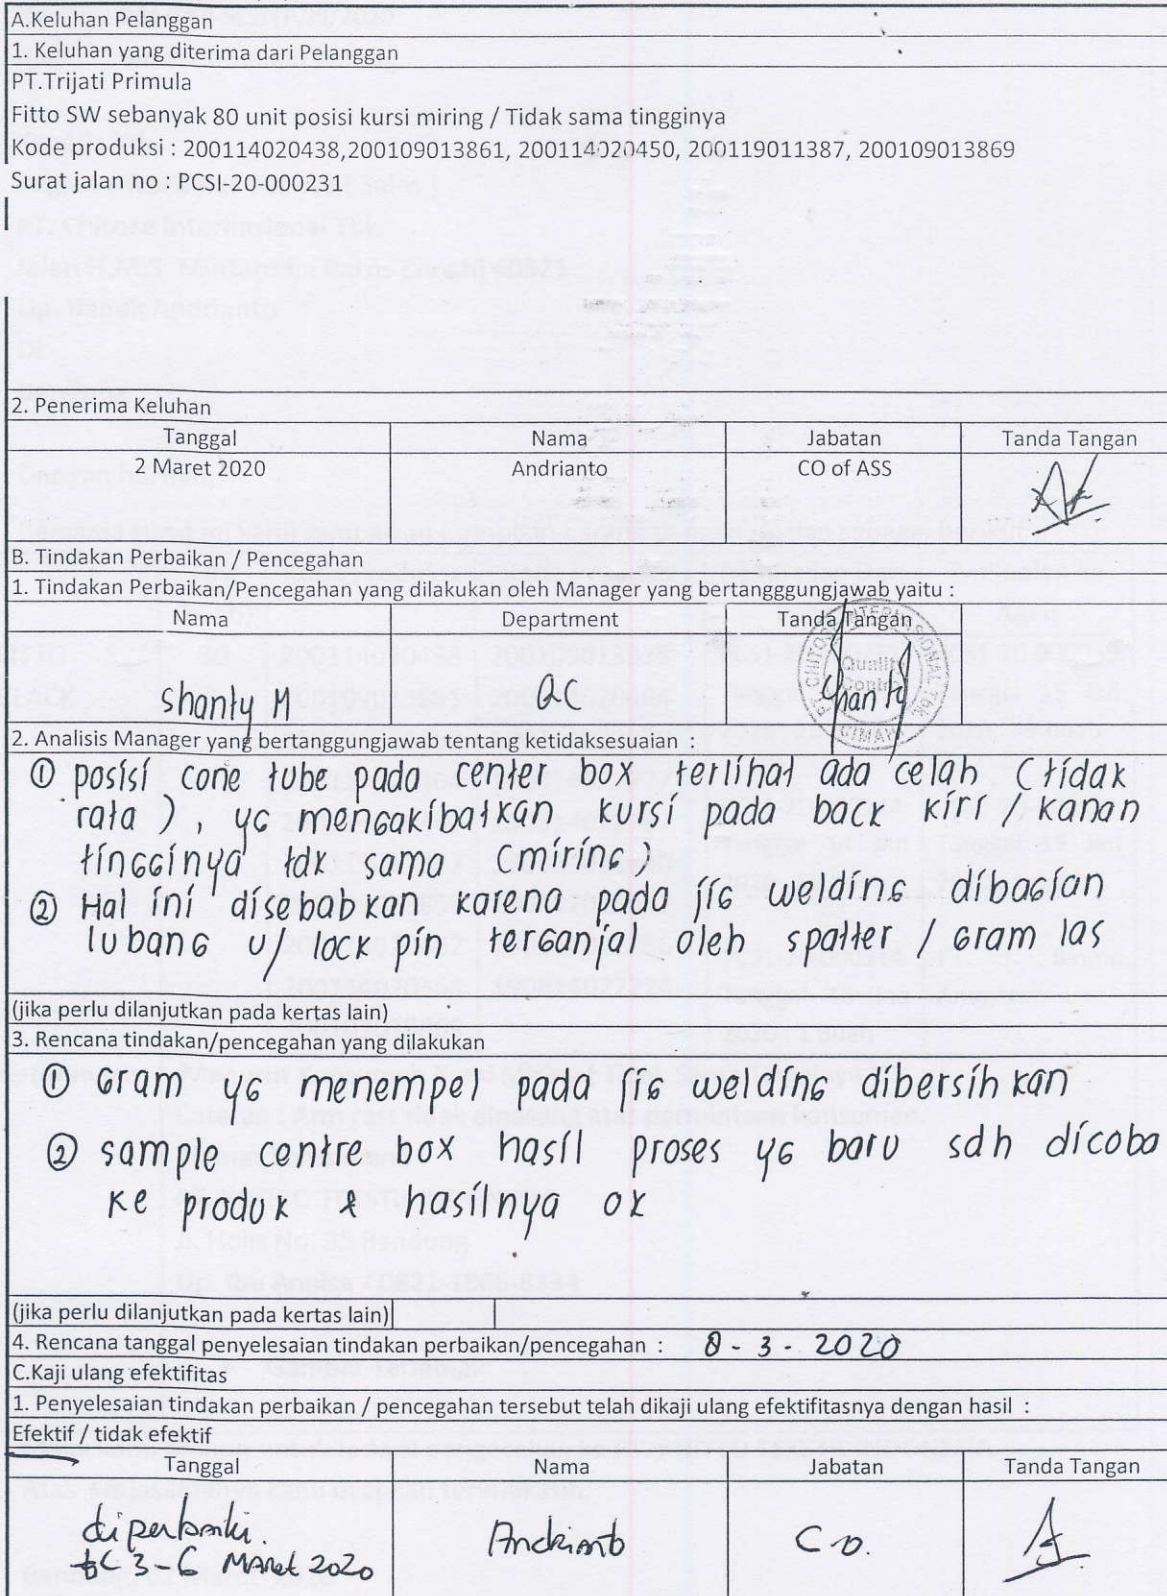 A.Keluhan Pelanggan
1. Keluhan yang diterima dari Pelanggan
PT.Trijati Primula
Fitto SW sebanyak 80 unit posisi kursi miring / Tidak sama tingginya
Kode produksi : 200114020438,200109013861, 200114020450, 200119011387, 200109013869
Surat jalan no : PCSI-20-000231
2. Penerima Keluhan
Tanggal Nama Jabatan Tanda Tangan
2 Maret 2020 Andrianto CO of ASS
B. Tindakan Perbaikan / Pencegahan
1. Tindakan Perbaikan/Pencegahan yang dilakukan oleh Manager yang bertangggungjawab yaitu :
Nama Department Tanda Tangan
Shanty M QC
Quality
Control
Shanty
2. Analisis Manager yang bertanggungjawab tentang ketidaksesuaian :
① posisi cone tube pada center box terlihat ada celah (tidak
rata), yg mengakibatkan kursi pada back kiri / kanan
tingginya tdk sama (miring)
② Hal ini disebabkan karena pada jig welding dibagian
lubang u/ lock pin terganjal oleh spatter / gram las
(jika perlu dilanjutkan pada kertas lain)
3. Rencana tindakan/pencegahan yang dilakukan
① Gram yg menempel pada jig welding dibersihkan
② sample centre box hasil proses yg baru sdh dicoba
ke produk & hasilnya ok
(jika perlu dilanjutkan pada kertas lain)
4. Rencana tanggal penyelesaian tindakan perbaikan/pencegahan : - 3 - 2020
C.Kaji ulang efektifitas
1. Penyelesaian tindakan perbaikan / pencegahan tersebut telah dikaji ulang efektifitasnya dengan hasil :
Efektif / tidak efektif
Tanggal Nama Jabatan Tanda Tangan
diperbaiki. Andrianto C O.
3 - 6 Maret 2020